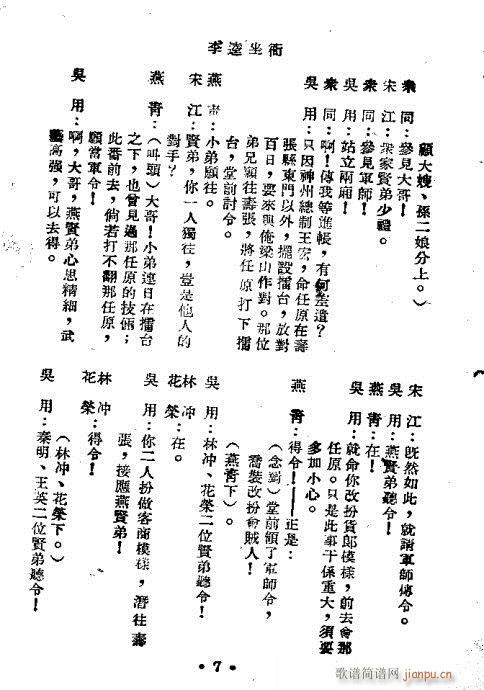 李逵坐衙
顧大嫂、孫二娘分上。）
衆　同：參見大哥！
宋　江：衆家賢弟少禮。
衆　同：參見軍師！
吳　用：站立兩廂！
衆　同：啊！傳我等進帳，有何差遣？
吳　用：只因神州總制王宏，命任原在壽
張縣東門以外，擺設擂台，放對
百日，要來與俺梁山作對。那位
弟兄願往壽張，將任原打下擂
台，堂前討令。
燕　青：小弟願往。
宋　江：賢弟，你一人獨往，豈是他人的
對手？
燕　青：（叫頭）大哥！小弟連日在擂台
之下，也曾見過那任原的技倆；
此番前去，倘若打不翻那任原，
願當軍令！
吳　用：啊，大哥，燕賢弟心思精細，武
藝高强，可以去得。
宋　江：旣然如此，就請軍師傳令。
吳　用：燕賢弟聽令！
燕　青：在！
吳　用：就命你改扮貨郎模樣，前去會那
任原。只是此事干係重大，須要
多加小心。
燕　青：得令！——正是：
（念詩）堂前領了軍師令，
喬裝改扮會賊人！
（燕青下）。
吳　用：林冲、花榮二位賢弟聽令！
林冲
花榮：在。
吳　用：你二人扮做客商模樣，潛往壽
張，接應燕賢弟！
林冲
花榮：得令！
（林冲、花榮下。）
吳　用：秦明、王英二位賢弟聽令！
• 7 •
歌谱简谱网
jianpu.cn